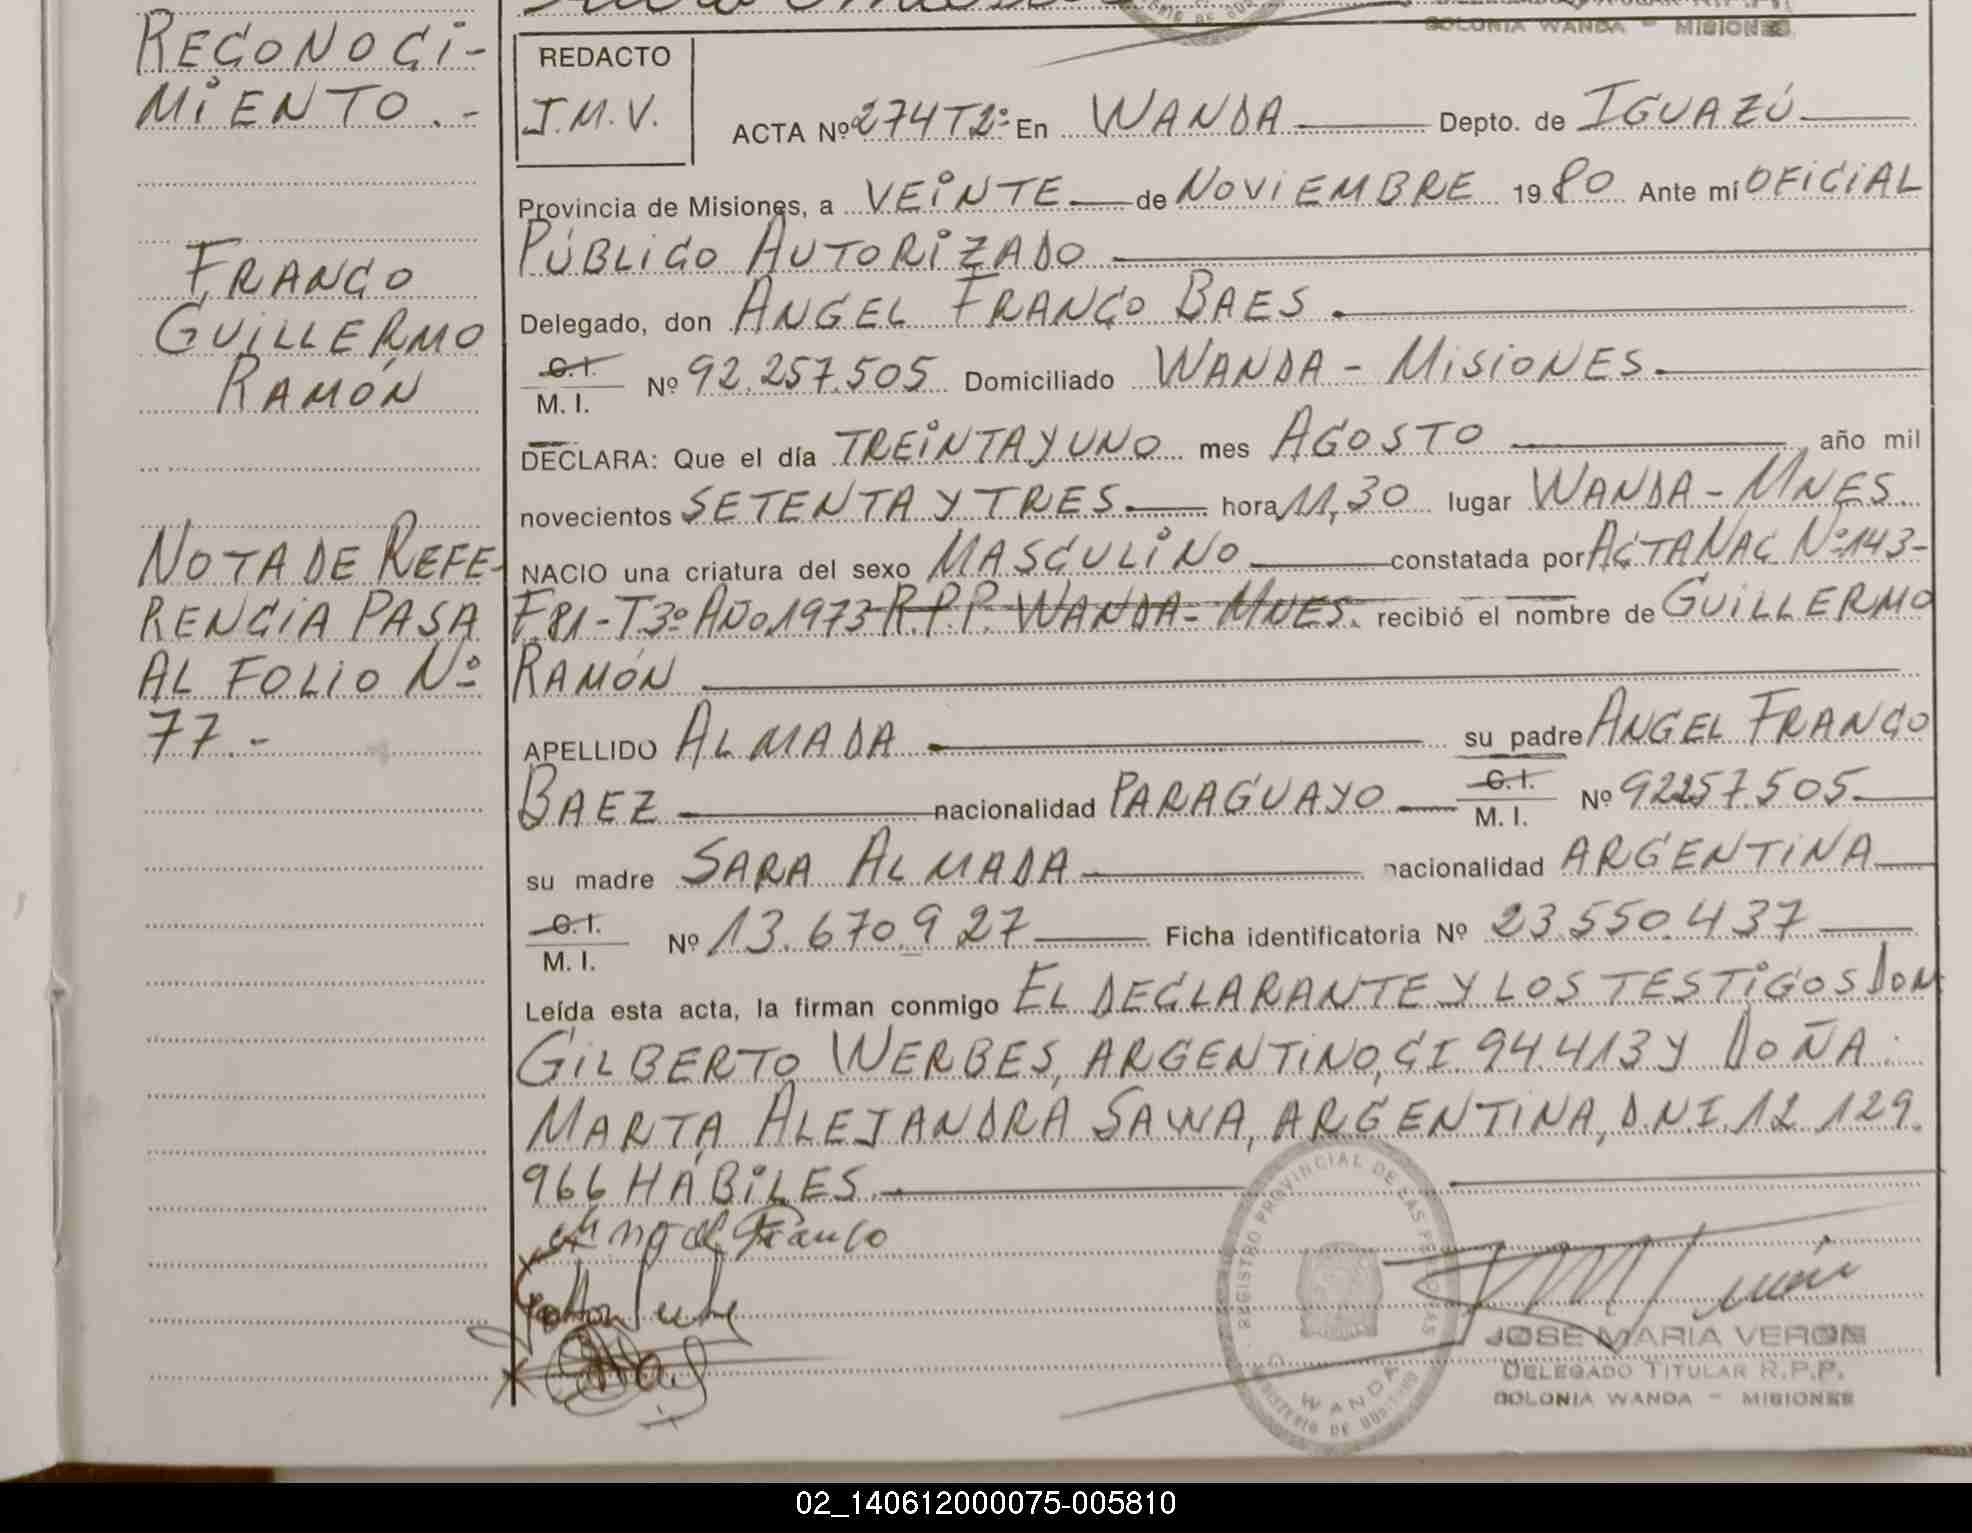 COLONIA WANDA - MISIONES
RECONOCI-
MIENTO.-
FRANCO
GUILLERMO
RAMÓN
NOTA DE REFE-
RENCIA PASA
AL FOLIO Nº
77.-
REDACTO
J.M.V.
ACTA Nº 274 T2º En WANDA Depto. de IGUAZÚ
Provincia de Misiones, a VEINTE de NOVIEMBRE 1980 Ante mí OFICIAL
PÚBLICO AUTORIZADO
Delegado, don ANGEL FRANCO BAES.
C.I. M.I. Nº 92.257.505 Domiciliado WANDA - MISIONES.
DECLARA: Que el día TREINTA Y UNO mes AGOSTO año mil
novecientos SETENTA Y TRES hora 11,30 lugar WANDA - MNES
NACIO una criatura del sexo MASCULINO constatada por ACTA NAC Nº 143-
F.81-T.3º AÑO 1973 R.P.P. WANDA - MNES. recibió el nombre de GUILLERMO
RAMÓN
APELLIDO ALMADA su padre ANGEL FRANCO
BAEZ nacionalidad PARAGUAYO C.I. M.I. Nº 92257.505
su madre SARA ALMADA nacionalidad ARGENTINA
C.I. M.I. Nº 13.670.927 Ficha identificatoria Nº 23.550.437
Leída esta acta, la firman conmigo EL DECLARANTE Y LOS TESTIGOS DON
GILBERTO WERBES, ARGENTINO, CI 94.413 Y DOÑA
MARTA ALEJANDRA SAWA, ARGENTINA, D.N.I. 12.129.
966 HÁBILES.
Angel Franco
REGISTRO PROVINCIAL DE LAS PERSONAS
WANDA
JOSE MARIA VERON
DELEGADO TITULAR R.P.P.
COLONIA WANDA - MISIONES
02_140612000075-005810